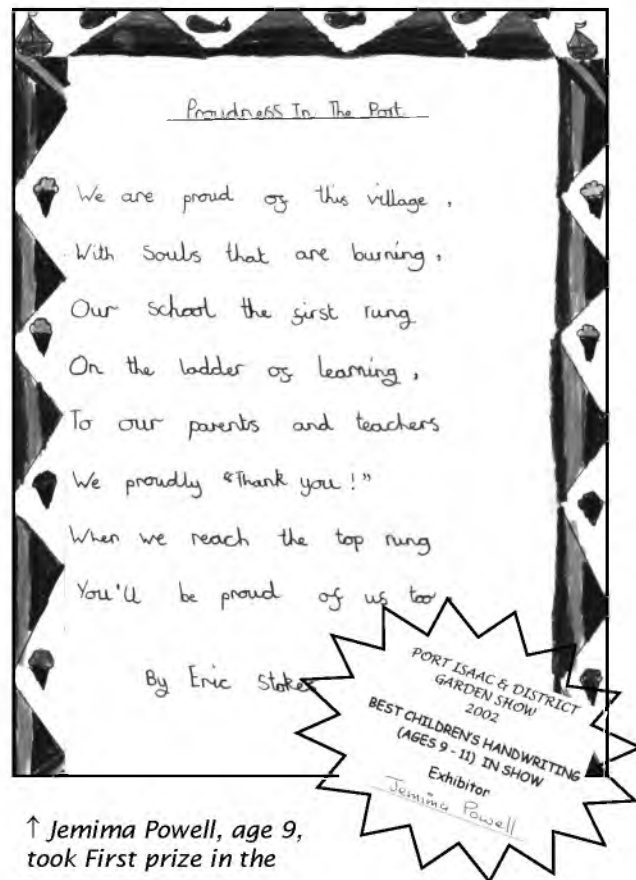 Proudness In The Port
We are proud of this village,
With souls that are burning,
Our school the first rung
On the ladder of learning,
To our parents and teachers
We proudly "Thank you!"
When we reach the top rung
You'll be proud of us too
By Eric Stokes
PORT ISAAC & DISTRICT
GARDEN SHOW
2002
BEST CHILDREN'S HANDWRITING
(AGES 9 - 11) IN SHOW
Exhibitor
Jemima Powell
↑ Jemima Powell, age 9,
took First prize in the